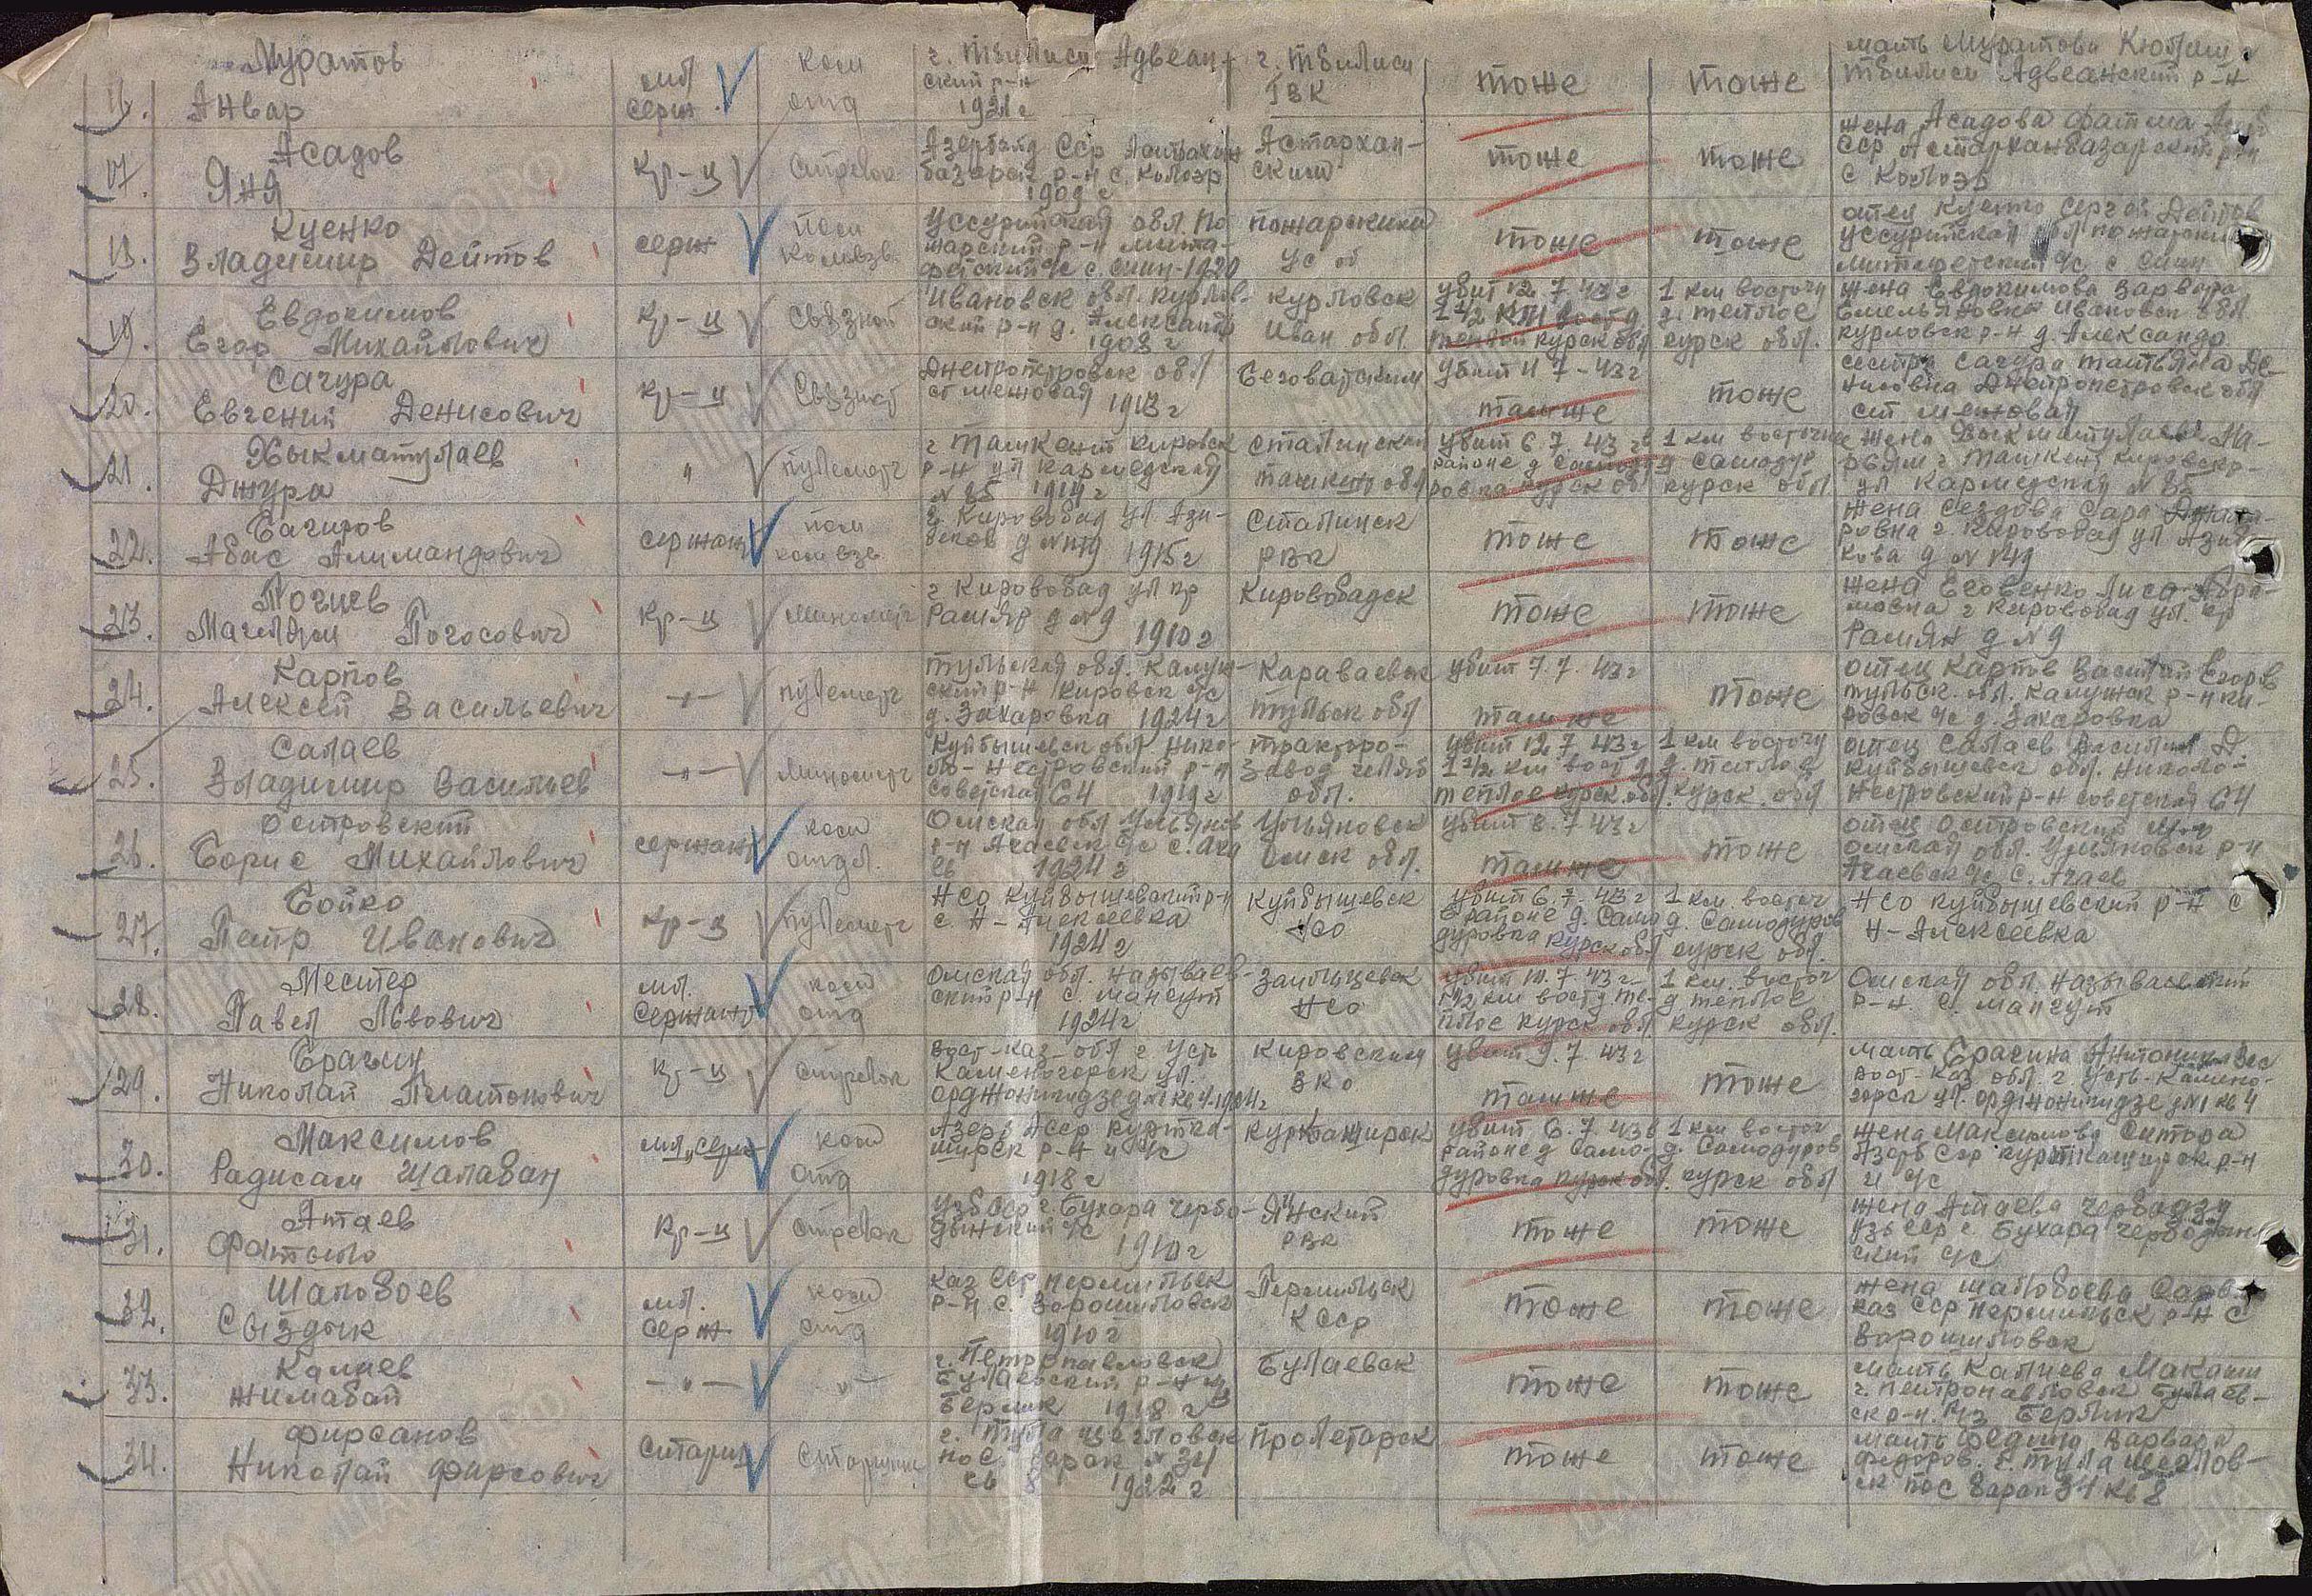 16.
Муратов
Анвар
мл
серж
ком
отд
г. Тбилиси Адвеан
ский р-н
1921 г
г. Тбилиси
ГВК
тоже
тоже
мать Муратова
Тбилиси Адвеанский р-н
17.
Асадов
Яня
Кр-ц
стрелок
Азербайд ССР
базарск р-н с. Колоэр
1909 г
Астархан-
ский
тоже
тоже
жена Асадова Фатма
ССР Астарханбазарский р-н
с Колоэр
18.
Куенко
Владимир Дейтов
серж
пом
комвзв.
Уссурийская обл. По
жарский р-н
с. Сиин-1920
пожарский
Ус об
тоже
тоже
отец Куенко Сергей Дейтов
Уссурийская обл пожарский
с Сиин
19.
Евдокимов
Егор Михайлович
Кр-ц
Связной
Ивановск обл. Курлов-
ский р-н д. Александр
1908 г
Курловск
Иван обл.
убит 12.7.43 г
1 1/2 км вост д
теплое курск обл
1 км восточн
д. теплое
курск обл.
жена Евдокимова Варвара
Емельяновна Ивановск обл
курловск р-н д. Александр
20.
Сачура
Евгений Денисович
кр-ц
Связной
Днепропетровск обл
ст межовая
1913 г
убит 11.7-43 г
там же
тоже
сестра Сачура Татьяна Де-
нисовна Днепропетровск обл
ст межовая
21.
Хыкматулаев
Джура
"
пулеметч
г Ташкент кировск
р-н ул Кармедская
N 85 1914 г
Сталинский
ташкент обл
убит 6.7.43 г в
районе д Самоду
ровка курск об
1 км восточнее
д самодур
курск обл
жена Хыкматулаева Ма-
рьям г Ташкент кировск р-
ул Кармедская N 85
22.
Багиров
Абас Алимандович
сержант
пом
комвзв
г. Кировобад ул Ази-
беков д N 149 1915 г
Сталинск
РВК
тоже
тоже
жена Сеидова Сара
ровна г. Кировобад ул Ази
кова д N 149
23.
Погиев
Погосович
Кр-ц
минометч
г Кировобад ул пр
Рамяр д N 9
1910 г
Кировобадск
тоже
тоже
жена Еговенко Лиса Абра-
мовна г Кировобад ул. пр
Рамян д N 9
24.
Карпов
Алексей Васильевич
-"-
пулеметч
Тульская обл. Калуж-
ский р-н Кировск с/с
д. Захаровка 1924 г
Караваевск
Тульск обл
убит 7.7.43 г
там же
тоже
отец Карпов Василий Егоров
тульск. обл. Калужск р-н ки-
ровск с/с д. Захаровка
25.
Салаев
Владимир Васильев
-"-
минометч
Куйбышевск обл Нико-
ло-Пестровский р-н
Советская 64 1919 г
тракторо-
завод челяб
обл.
убит 12.7.43 г
1 1/2 км вост д
теплое курск обл.
1 км восточн
д. теплое
курск. обл
отец Салаев Василий Д.
Куйбышевск обл. Николо-
пестровский р-н советская 64
26.
Островский
Борис Михайлович
сержант
ком
отдл.
Омская обл Ульянов
р-н Ачаевск с/с с. Ача
ев 1924 г
Ульяновск
Омск обл.
убит 8.7 43 г
там же
тоже
отец Островский
Омская обл. Ульяновск р-н
Ачаевск с/с с. Ачаев
27.
Бойко
Петр Иванович
кр-ц
пулеметч
НСО Куйбышевский р-н
с Н-Алексеевка
1924 г
Куйбышевск
НСО
убит 6.7.43 г
в районе д. Само
дуровка курск обл
1 км. восточ
д. Самодуров
курск обл.
НСО куйбышевский р-н с
Н-Алексеевка
28.
Местер
Павел Львович
мл.
Сержант
ком
отд
Омская обл. называев-
ский р-н с. Мангут
1924 г
Заильцевск
НСО
убит 10.7.43 г
1 1/2 км вост д те-
плое курск обл
1 км. восточ
д теплое
курск обл.
Омская обл. называевский
р-н. с. Мангут
29.
Брагин
Николай Платонович
кр-ц
стрелок
вост-каз-обл г. Усть
Каменогорск ул.
орджоникидзе д N1 кв 4.1924 г
Кировским
ВКО
убит 9.7.43 г
там же
тоже
мать Брагина Антонина
вост-каз обл. г. Усть-Камено-
горск ул. орджоникидзе д N1 кв 4
30.
Максимов
Радисам Шалабан
мл. серж
ком
отд
Азерб АССР Курдка-
ширск р-н
1918 г
убит 6.7 43 в
районе д Само-
дуровка курск обл.
1 км восточ
д. Самодуров
курск обл
жена Максимова Ситора
Азерб ССР
31.
Атаев
Фатыло
кр-ц
стрелок
УзбССР г. Бухара Чербо-
1910 г
РВК
тоже
тоже
жена Атаева
Узб ССР г. Бухара
ский с/с
32.
Шаповоев
Сыздык
мл.
серж
ком
отд
Каз ССР пермильск
р-н с. Ворошиловск
1910 г
Пермильск
КССР
тоже
тоже
жена Шаповоева
каз ССР пермильск р-н с
Ворошиловск
33.
Калиев
Жимабай
-"-
-"-
г. Петропавловск
Булаевский р-н
Берлик 1918 г
Булаевск
тоже
тоже
мать Калиева Макаш
г. петропавловск Булаев-
ск р-н. Берлик
34.
Фирсанов
Николай Фирсович
старш
старшин
г. Тула щегловск
пос. барак N 31
кв 8 1922 г
Пролетарск
тоже
тоже
мать Федина Варвара
федоров. г. Тула щеглов-
ск пос барак 31 кв 8